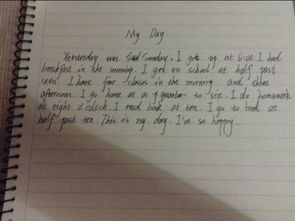 My Day
Yesterday was Sunday. I got up at 6:00. I had
breakfast in the morning. I get to school at half past
seven. I have four classes in the morning and three
afternoon. I go home at a quarter to six. I do homework
at eight o'clock. I read book at ten. I go to bed at
half past ten. This is my day. I'm so happy.